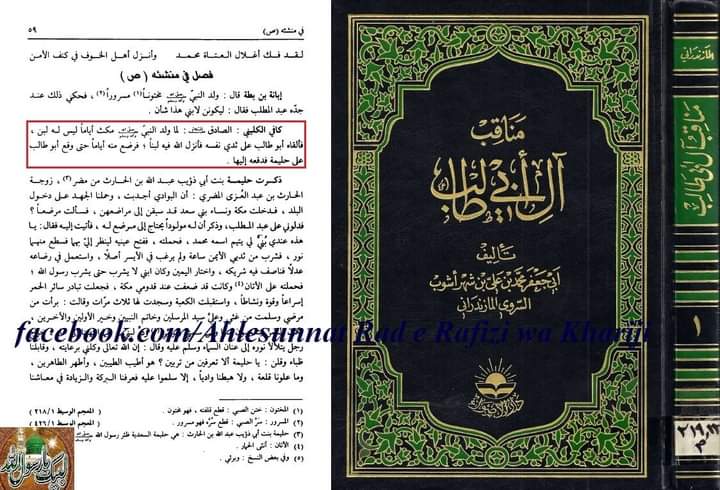 في منشئه (ص) ٥٩
لقـد فـك أغـلال الـعتـاة محـمـد وأنـزل أهـل الخـوف في كنف الأمـن
فصل في منشئه (ص)
إبانة بن بطة قال: ولد النبي مختوناً(١) مسروراً(٢)، فحكي ذلك عند
جدّه عبد المطلب فقال: ليكونن لابني هذا شأن.
كافي الكليني: الصادق: لما ولد النبي مكث أياماً ليس له لبن،
فألقاه أبو طالب على ثدي نفسه فأنزل الله فيه لبناً؛ فرضع منه أياماً حتى وقع أبو طالب
على حليمة فدفعه إليها.
ذكرت حليمة بنت أبي ذؤيب عبد الله بن الحارث من مضر(٣)، زوجة
الحارث بن عبد العُزى المضري: أن البوادي أجدبت، وحملنا الجهد على دخول
البلد، فدخلت مكة ونساء بني سعد قد سبقن إلى مراضعهن، فسألت مرضعاً؟
فدلوني على عبد المطلب، وذكر أن له مولوداً يحتاج إلى مرضع له، فأتيت إليه فقال: يا
هذه عندي بُنيّ لي يتيم اسمه محمد، فحملته، ففتح عينيه لينظر إليّ بهما فسطع منهما
نور، فشرب من ثديي الأيمن ساعة ولم يرغب في الأيسر أصلًا، واستعمل في رضاعه
عدلاً فناصف فيه شريكه، واختار اليمين وكان ابني لا يشرب حتى يشرب رسول الله؛
فحملته على الأتان(٤) وكانت قد ضعفت عند قدومي مكة، فجعلت تبادر سائر الحمر
إسراعاً وقوة ونشاطاً، واستقبلت الكعبة وسجدت لها ثلاث مرّات وقالت: برأت من
مرضي وسلمت من غثي وعليّ سيد المرسلين وخاتم النبيين وخير الأولين والآخرين،
facebook.com/Ahlesunnat Rad e Rafizi wa Khariji
رجل يتلألأ نوره إلى عنان السماء وسلم عليه وقال: إن الله تعالى وكلني برعايته، وقابلنا
ظباء وقلن: يا حليمة ألا تعرفين من تربين؟ هو أطيب الطيبين، وأطهر الطاهرين،
وما علونا قلعة، ولا هبطنا وادياً، إلا سلموا عليه فعرفنا البركة والزيادة في معاشنا
(١) المختون: ختن الصبي: قطع قلفته، فهو مختون. المعجم الوسيط ٢١٨/١
(٢) المسرور: سرّ الصبي: قطع سُرّه فهو مسرور. المعجم الوسيط ٤٢٦/١
(٣) حليمة بنت أبي ذؤيب عبد الله بن الحارث: هي حليمة السعدية ظئر رسول الله
(٤) الأتان: أنثى الحمار.
(٥) وفي بعض النسخ: وبرئي.
لبيك يا رسول الله
مناقب
آل أبي طالب
تأليف
أبي جعفر محمد بن علي بن شهر آشوب
السروي المازندراني
دار الأضواء
المازندراني
مناقب آل أبي طالب
١